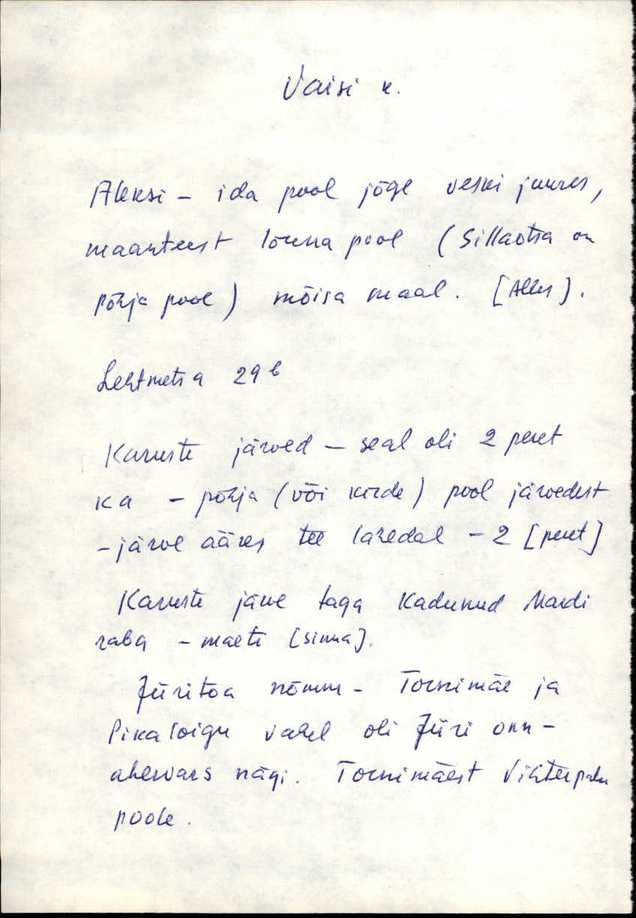 Vaisi k.
Aleksi – ida pool jõge veski juures,
maanteest lõuna pool (Sillaotsa on
põhja pool) mõisa maal. [Alles].
Lehtmetsa 29 b
Karuste järved – seal oli 2 peret
ka – põhja (või kirde) pool järvedest
– järve ääres tee lähedal – 2 [peret]
Karuste järve taga Kadunud Mardi
raba – maeti [sinna].
Jüritoa nõmm – Tornimäe ja
Pikaloigu vahel oli Jüri onn –
ahervars nägi. Tornimäest Vihterpalu
poole.